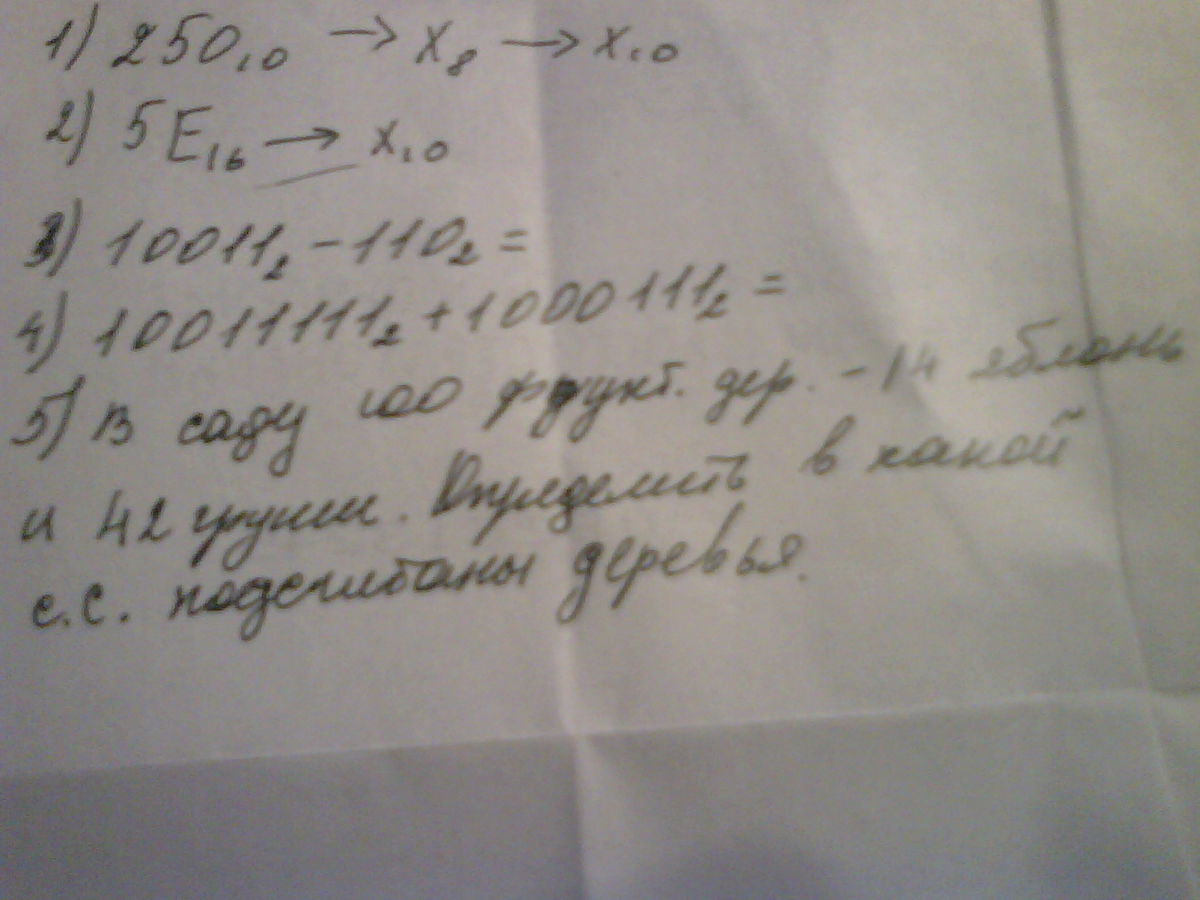 1) 250₁₀ → X₈ → X₁₀
2) 5E₁₆ → X₁₀
3) 10011₂ - 110₂ =
4) 10011111₂ + 1000111₂ =
5) В саду 100 фрукт. дер. - 14 яблонь
и 42 груши. Определить в какой
с.с. подсчитаны деревья.